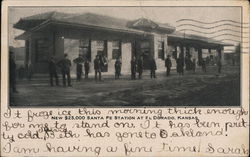 NEW $25,000 SANTA FE STATION AT EL DORADO, KANSAS.
It froze ice this morning thick enough
for me to stand on. It has been pretty
cold. has gone to Oakland.
I am having a fine time. Sarah